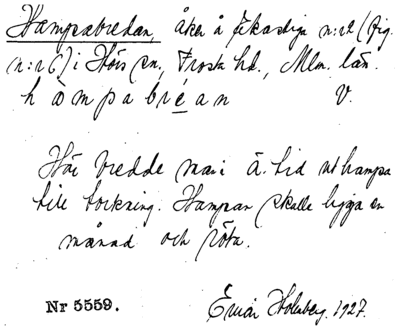 Hampabredan, åker å Fikastiga n:r 2 (fig.
n:r 6) i Hörs sn, Frosta hd., Mlm. län.
hampabréan V.
Här bredde man i ä. tid ut hampa
till torkning. Hampan skulle ligga en
månad och röta.
Nr 5559. Einar Holmberg. 1927.